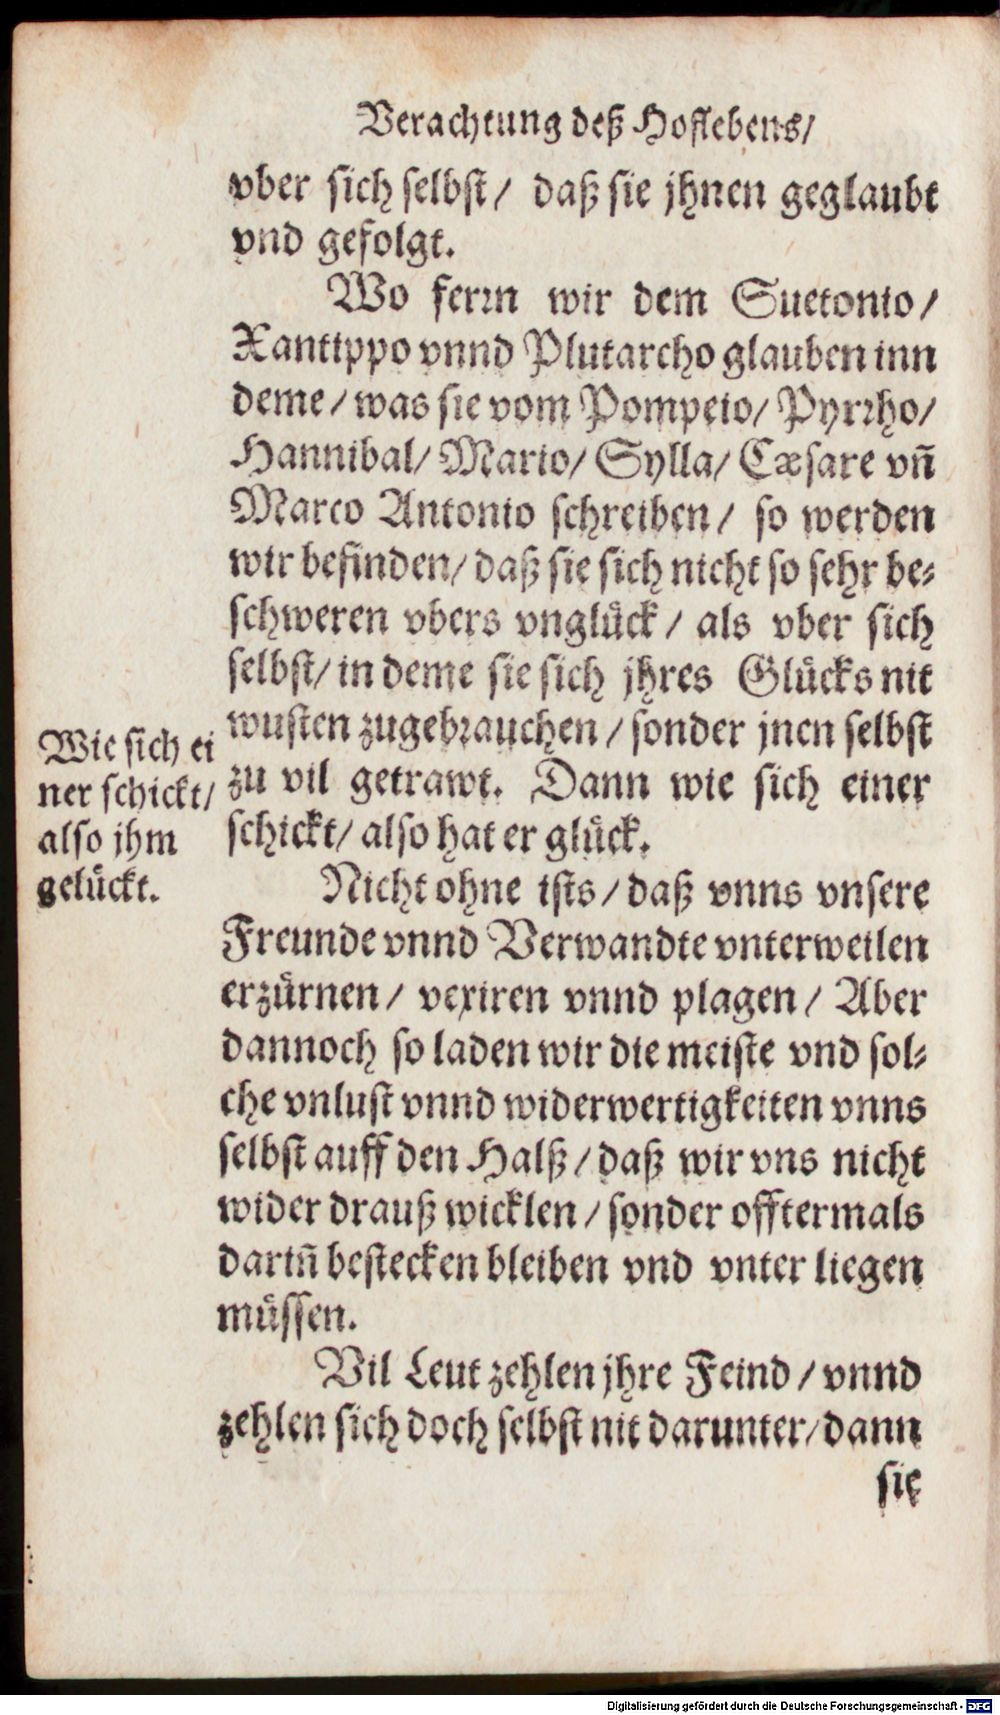 Verachtung deß Hoflebens/
vber sich selbst/ daß sie jhnen geglaubt
vnd gefolgt.
Wo ferꝛn wir dem Suetonio/
Xantippo vnnd Plutarcho glauben inn
deme/ was sie vom Pompeio/ Pyrꝛho/
Hannibal/ Mario/ Sylla/ Cæsare vñ
Marco Antonio schreiben/ so werden
wir befinden/ daß sie sich nicht so sehr be⸗
schweren vbers vnglück/ als vber sich
selbst/ in deme sie sich jhres Glücks nit
wusten zugebꝛauchen/ sonder jnen selbst
zu vil getrawt. Dann wie sich einer
schickt/ also hat er glück.
Wie sich ei
ner schickt/
also jhm
gelückt.
Nicht ohne ists/ daß vnns vnsere
Freunde vnnd Verwandte vnterweilen
erzürnen/ vexiren vnnd plagen/ Aber
dannoch so laden wir die meiste vnd sol⸗
che vnlust vnnd widerwertigkeiten vnns
selbst auff den Halß/ daß wir vns nicht
wider drauß wicklen/ sonder offtermals
dariñ bestecken bleiben vnd vnter liegen
müssen.
Vil Leut zehlen jhre Feind/ vnnd
zehlen sich doch selbst nit darunter/ dann
sie
Digitalisierung gefördert durch die Deutsche Forschungsgemeinschaft - DFG